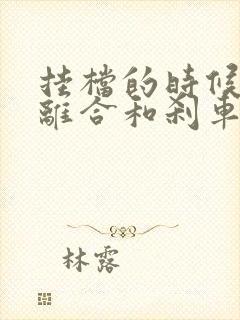 挂檔的時候
離合和剎車
林露